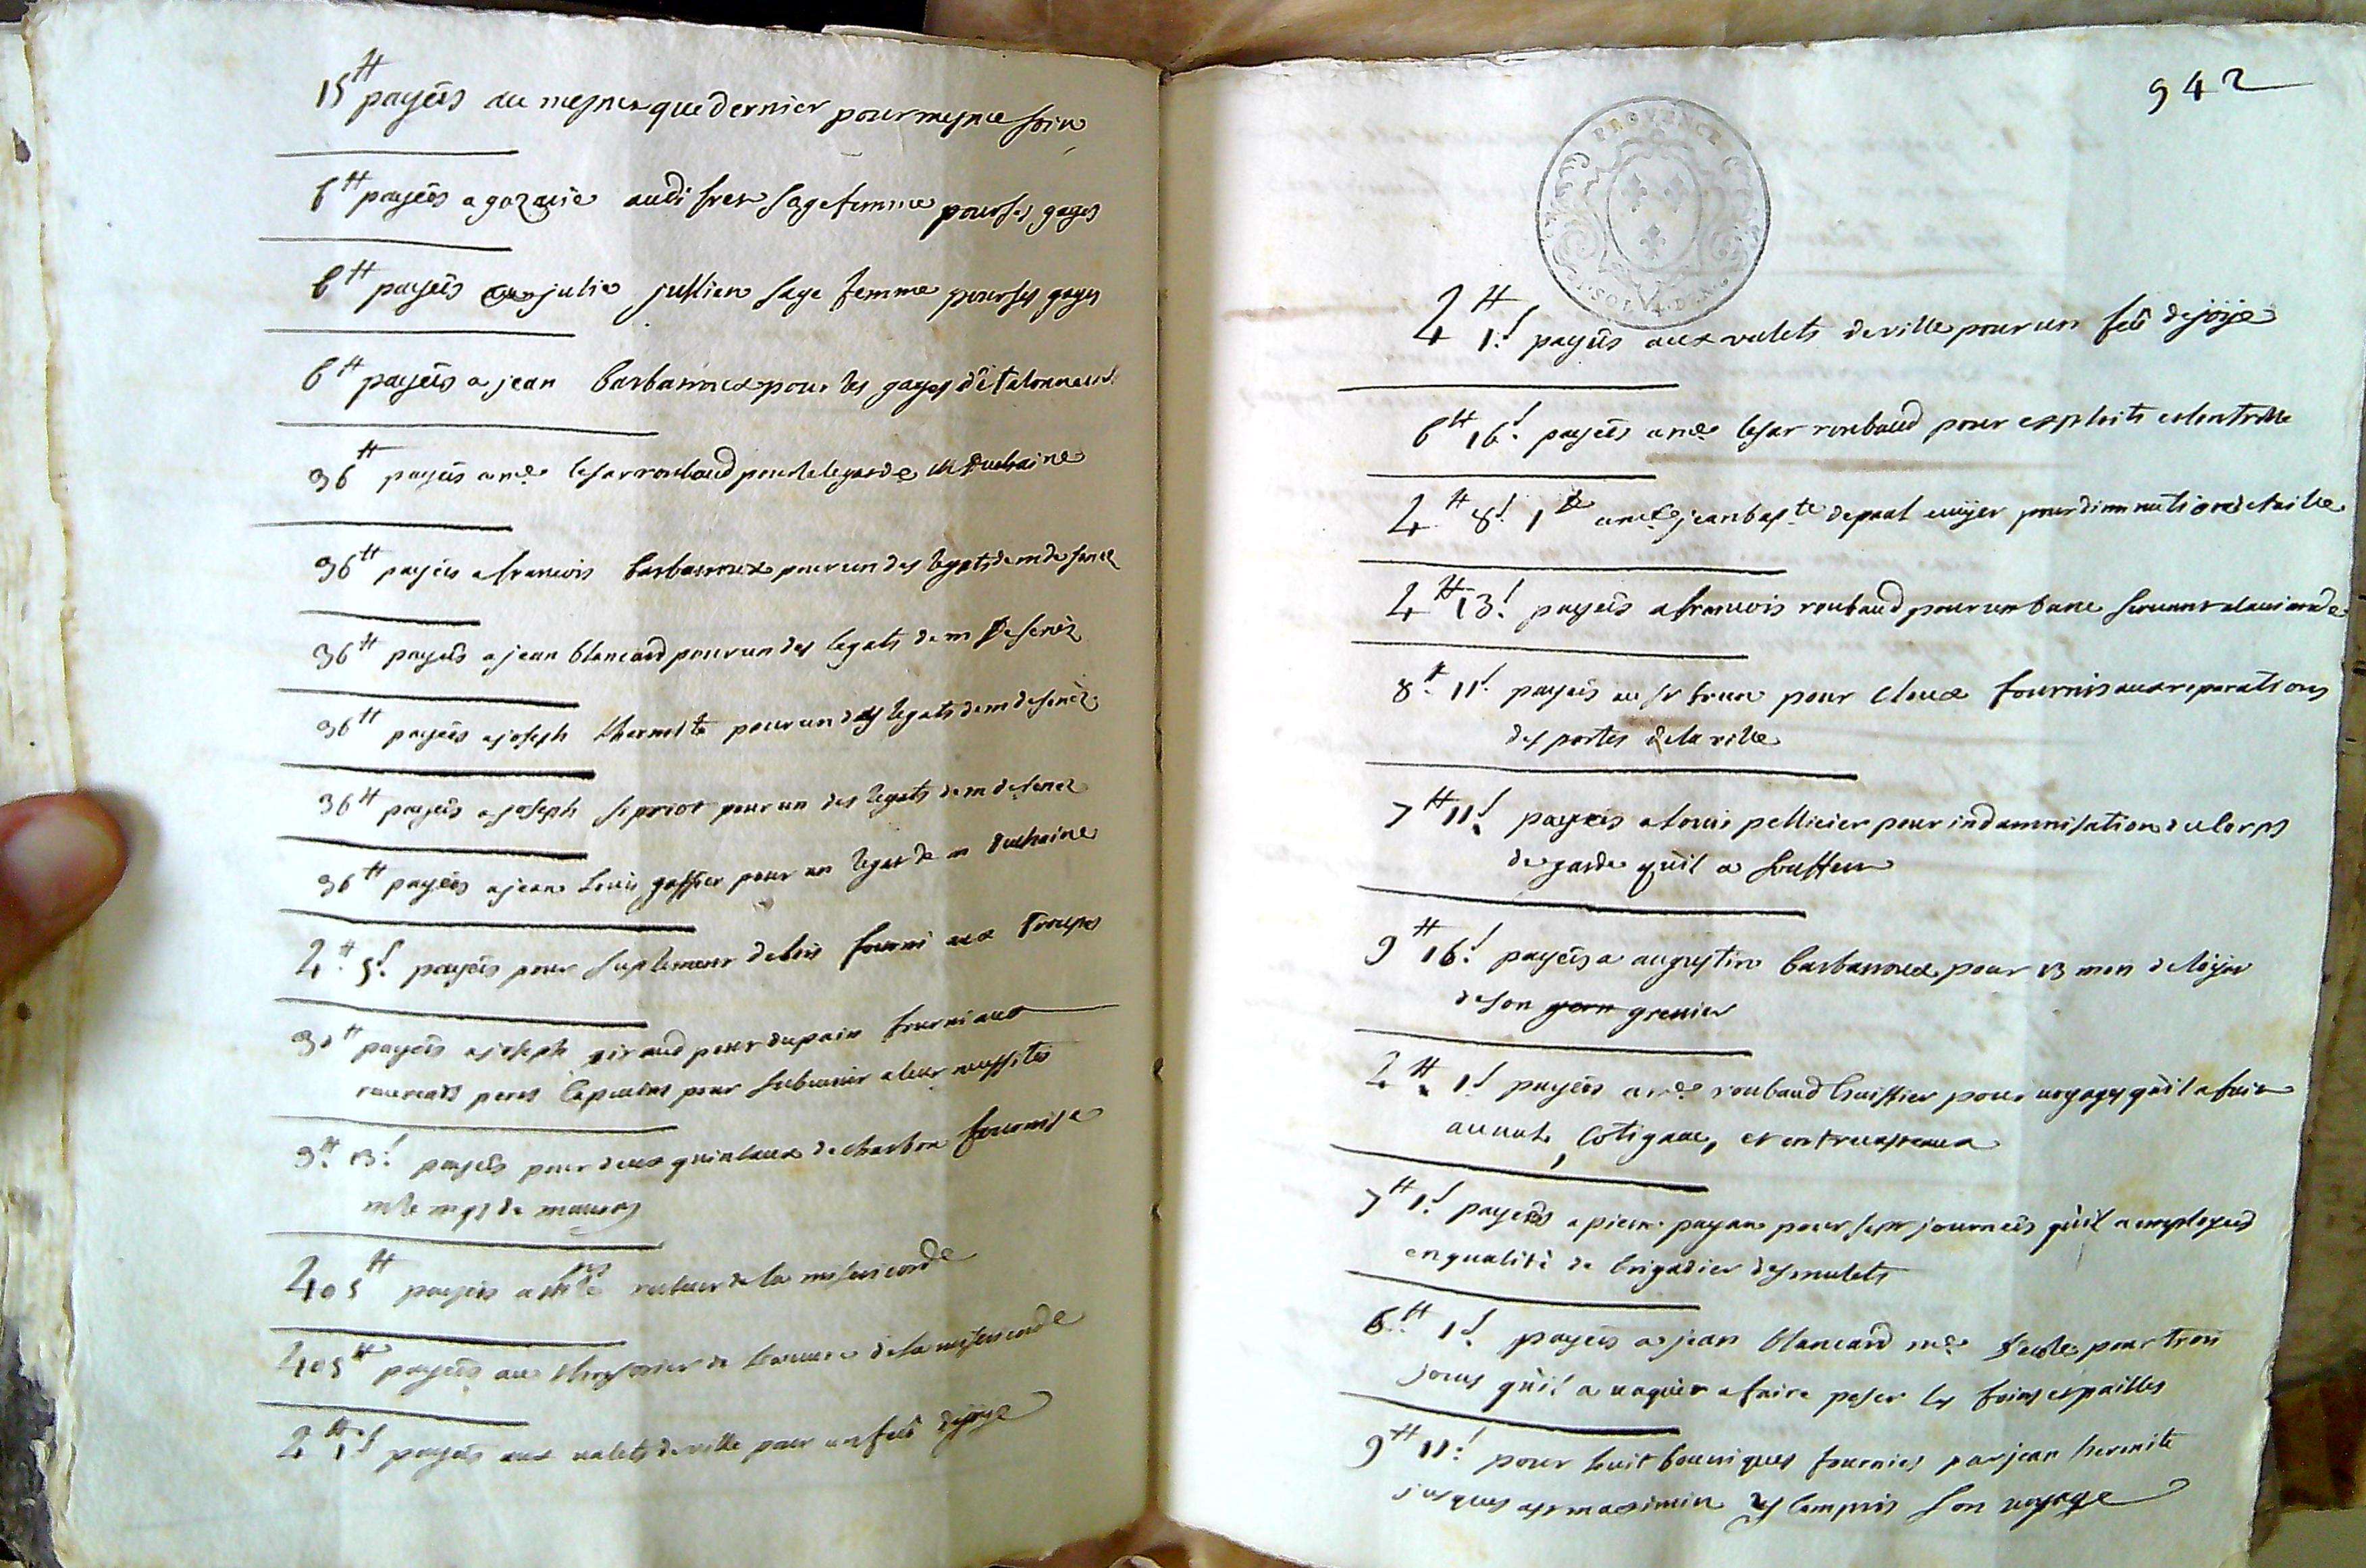 15# payées au mesme que dernier pour mesme soin
6# payées a gazarie audifren sage femme pour ses gages
6# payées a julie jullien sage femme pour ses gages
6# payées a jean barbaroux pour les gages d'étalonneur
36# payées a me cesar roubaud pour le legat de m duchaine
36# payées a francois barbaroux pour un des legats de m de senez
36# payées a jean blancard pour un des legats de m de senéz
36# payées a joseph thermete pour un des legats de m de senéz
36# payées a joseph sepriot pour un des legats de m de senez
36# payées a jean louis gassier pour un legat de m duchaine
4# 5s payées pour suplement de bois fourni aux troupes
30# payées a joseph giraud pour du pain fourni aux
reverends peres capucins pour subvenir a leur nessités
3# 13s payées pour deux quintaux de charbon fournis a
405# payées a recteur de la misericorde
405# payées au thresorier de l'oeuvre de la misericorde
2# 1s payées aux valets de ville pour un feu de joye
942
PROVENCE
4# 1s payées aux valets de ville pour un feu de joye
6# 16s payées a me cesar roubaud pour exploits
4# 8s 1d a me jean bapte de paul ecuyer pour diminution de taille
4# 13s payées a francois roubaud pour un banc servant a la viande
8# 11s payées au sr brun pour cloux fournis aux reparations
des portes de la ville
7# 11s payées a louis pellicier pour indamnisation du corps
de garde qu'il a souffeur
9# 16s payées a augustin barbaroux pour 13 mois de loyer
de son grenier
2# 1s payées a me roubaud huissier pour voyages qu'il a fait
au , Cotignac, et entrecasteaux
7# 1s payées a pierre payan pour sept journées qu'il a employées
en qualité de brigadier des mulets
6# 1s payées a jean blancard me d'ecole pour trois
jours qu'il a vaquer a faire peser les foins et pailles
9# 11s pour huit bouriques fournies par jean hermite
jusques a st maximin y compris son voyage